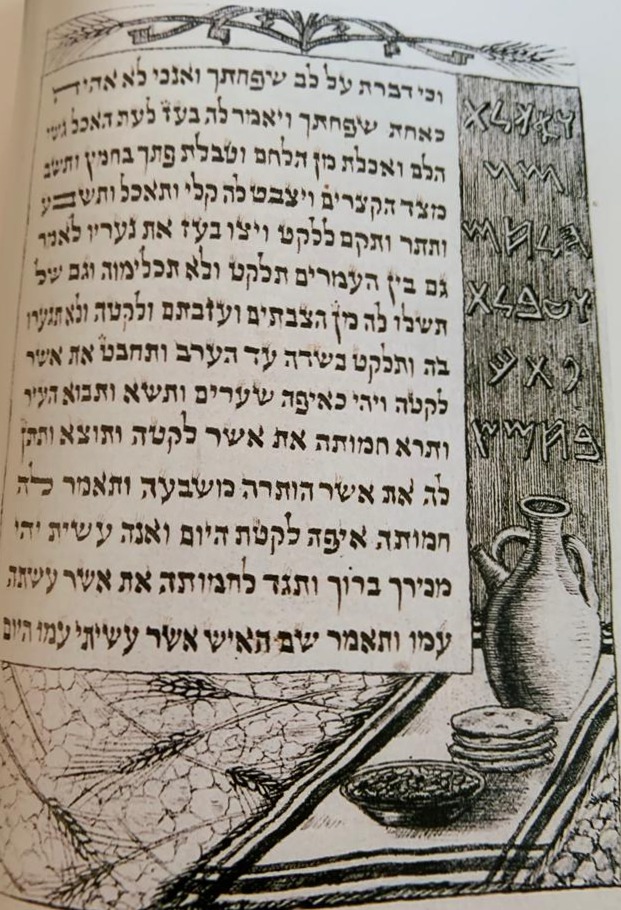 וכי דברת על לב שפחתך ואנכי לא אהיה
כאחת שפחתך ויאמר לה בעז לעת האכל גשי
הלם ואכלת מן הלחם וטבלת פתך בחמץ ותשב
מצד הקצרים ויצבט לה קלי ותאכל ותשבע
ותתר ותקם ללקט ויצו בעז את נעריו לאמר
גם בין העמרים תלקט ולא תכלימוה וגם של
תשלו לה מן הצבתים ועזבתם ולקטה ולא תגערו
בה ותלקט בשדה עד הערב ותחבט את אשר
לקטה ויהי כאיפה שערים ותשא ותבוא העיר
ותרא חמותה את אשר לקטה ותוצא ותתן
לה את אשר הותרה משבעה ותאמר לה
חמותה איפה לקטת היום ואנה עשית יהי
מכירך ברוך ותגד לחמותה את אשר עשתה
עמו ותאמר שם האיש אשר עשיתי עמו היום
𐤅𐤀𐤊𐤋𐤕
𐤌𐤍
𐤄𐤋𐤇𐤌
𐤅𐤈𐤁𐤋𐤕
𐤐𐤕𐤊
𐤁𐤇𐤌𐤑